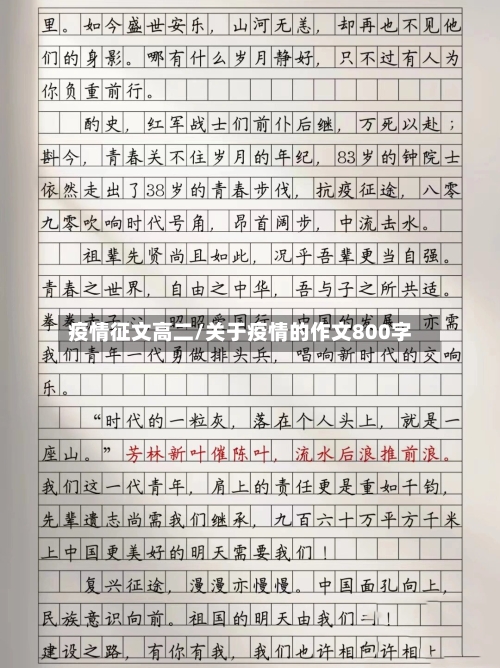 里。如今盛世安乐，山河无恙，却再也不见他
们的身影。哪有什么岁月静好，只不过有人为
你负重前行。
酌史，红军战士们前仆后继，万死以赴；
斟今，青春关不住岁月的年纪，83岁的钟院士
依然走出了38岁的青春步伐，抗疫征途，八零
九零吹响时代号角，昂首阔步，中流击水。
祖辈先贤尚且如此，况乎吾辈更当自强。
青春之世界，自由之中华，吾与子之所共适。
拳拳赤子心，昭昭爱国行，中国的发展，亦需
疫情征文高二/关于疫情的作文800字
我们青年一代勇做排头兵，唱响新时代的交响
乐。
“时代的一粒灰，落在个人头上，就是一
座山。”芳林新叶催陈叶，流水后浪推前浪。
我们这一代青年，肩上的责任更是重如千钧，
先辈遗志尚需我们继承，九百六十万平方千米
上中国更美好的明天需要我们！
复兴征途，漫漫亦慢慢。中国面孔向上，
民族意识向前。祖国的明天由我们！
建设之路，有你有我，我们也许相向许相